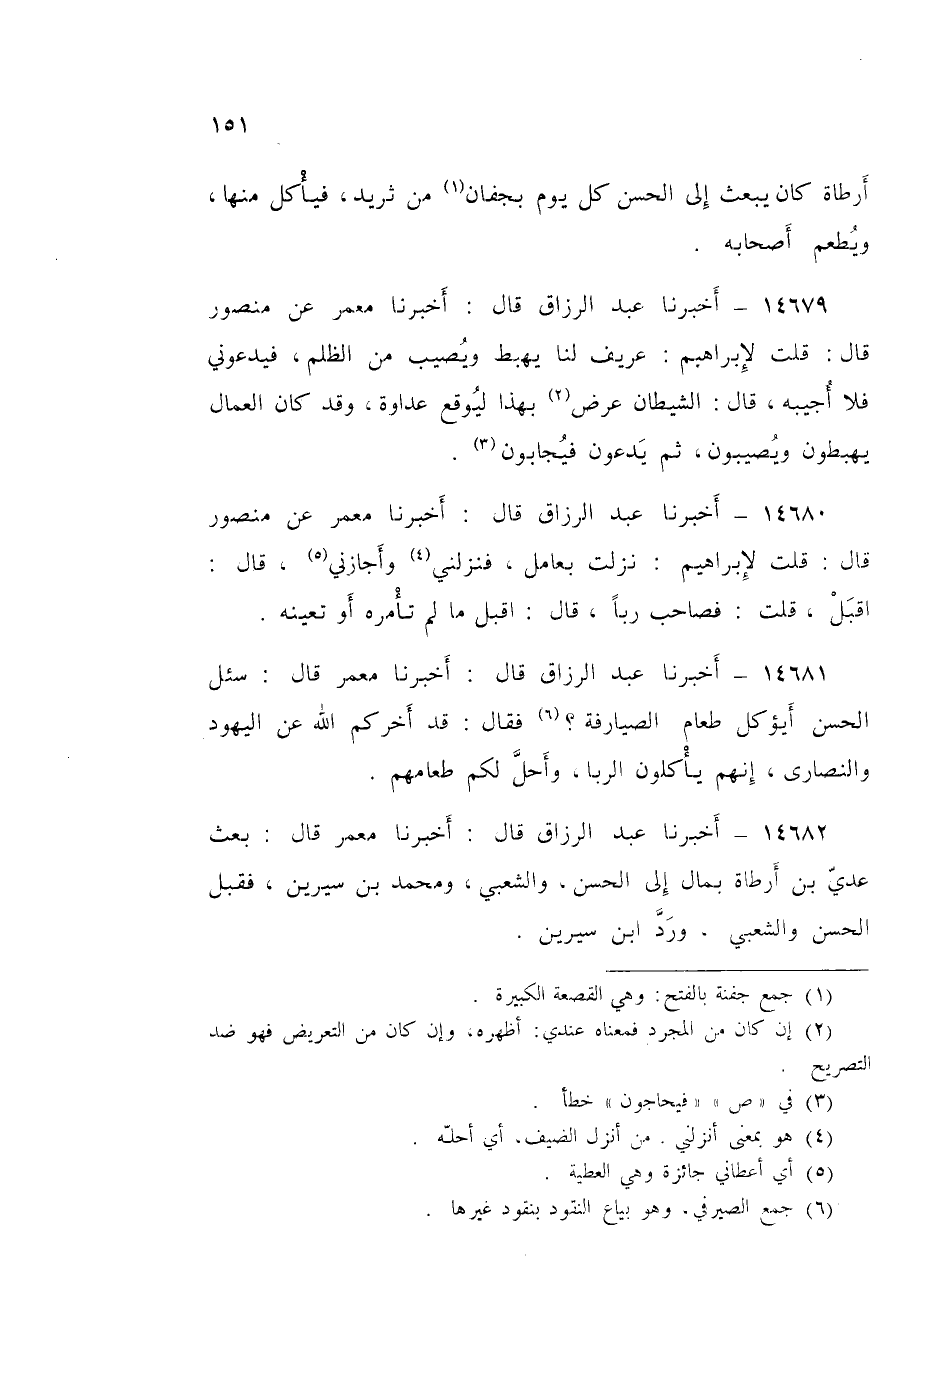 ١٥١
أَرطاة كان يبعث إِلى الحسن كل يوم بجفان(١) من ثريد ، فيأْكل منها ،
ويُطعم أَصحابه .
١٤٦٧٩ - أَخبرنا عبد الرزاق قال : أَخبرنا معمر عن منصور
قال : قلت لإِبراهيم : عريف لنا يهبط ويُصيب من الظلم ، فيدعوني
فلا أُجيبه ، قال : الشيطان عرض(٢) بهذا ليُوقع عداوة ، وقد كان العمال
يهبطون ويُصيبون ، ثم يَدعون فيُجابون(٣) .
١٤٦٨٠ - أَخبرنا عبد الرزاق قال : أَخبرنا معمر عن منصور
قال : قلت لإِبراهيم : نزلت بعامل ، فنزلني(٤) وأَجازني(٥) ، قال :
اقبَلْ ، قلت : فصاحب رباً ، قال : اقبل ما لم تأْمره أَو تعينه .
١٤٦٨١ - أَخبرنا عبد الرزاق قال : أَخبرنا معمر قال : سئل
الحسن أَيؤكل طعام الصيارفة ؟(٦) فقال : قد أَخركم الله عن اليهود
والنصارى ، إِنهم يأْكلون الربا ، وأَحلَّ لكم طعامهم .
١٤٦٨٢ - أَخبرنا عبد الرزاق قال : أَخبرنا معمر قال : بعث
عديّ بن أَرطاة بمال إِلى الحسن ، والشعبي ، ومحمد بن سيرين ، فقبل
الحسن والشعبي . ورَدَّ ابن سيرين .
(١) جمع جفنة بالفتح: وهي القصعة الكبيرة .
(٢) إن كان من المجرد فمعناه عندي: أظهره، وإن كان من التعريض فهو ضد
التصريح .
(٣) في « ص » « فيحاجون » خطأ .
(٤) هو بمعنى أنزلني . من أنزل الضيف، أي أحلّه .
(٥) أي أعطاني جائزة وهي العطية .
(٦) جمع الصيرفي، وهو بياع النقود بنقود غيرها .